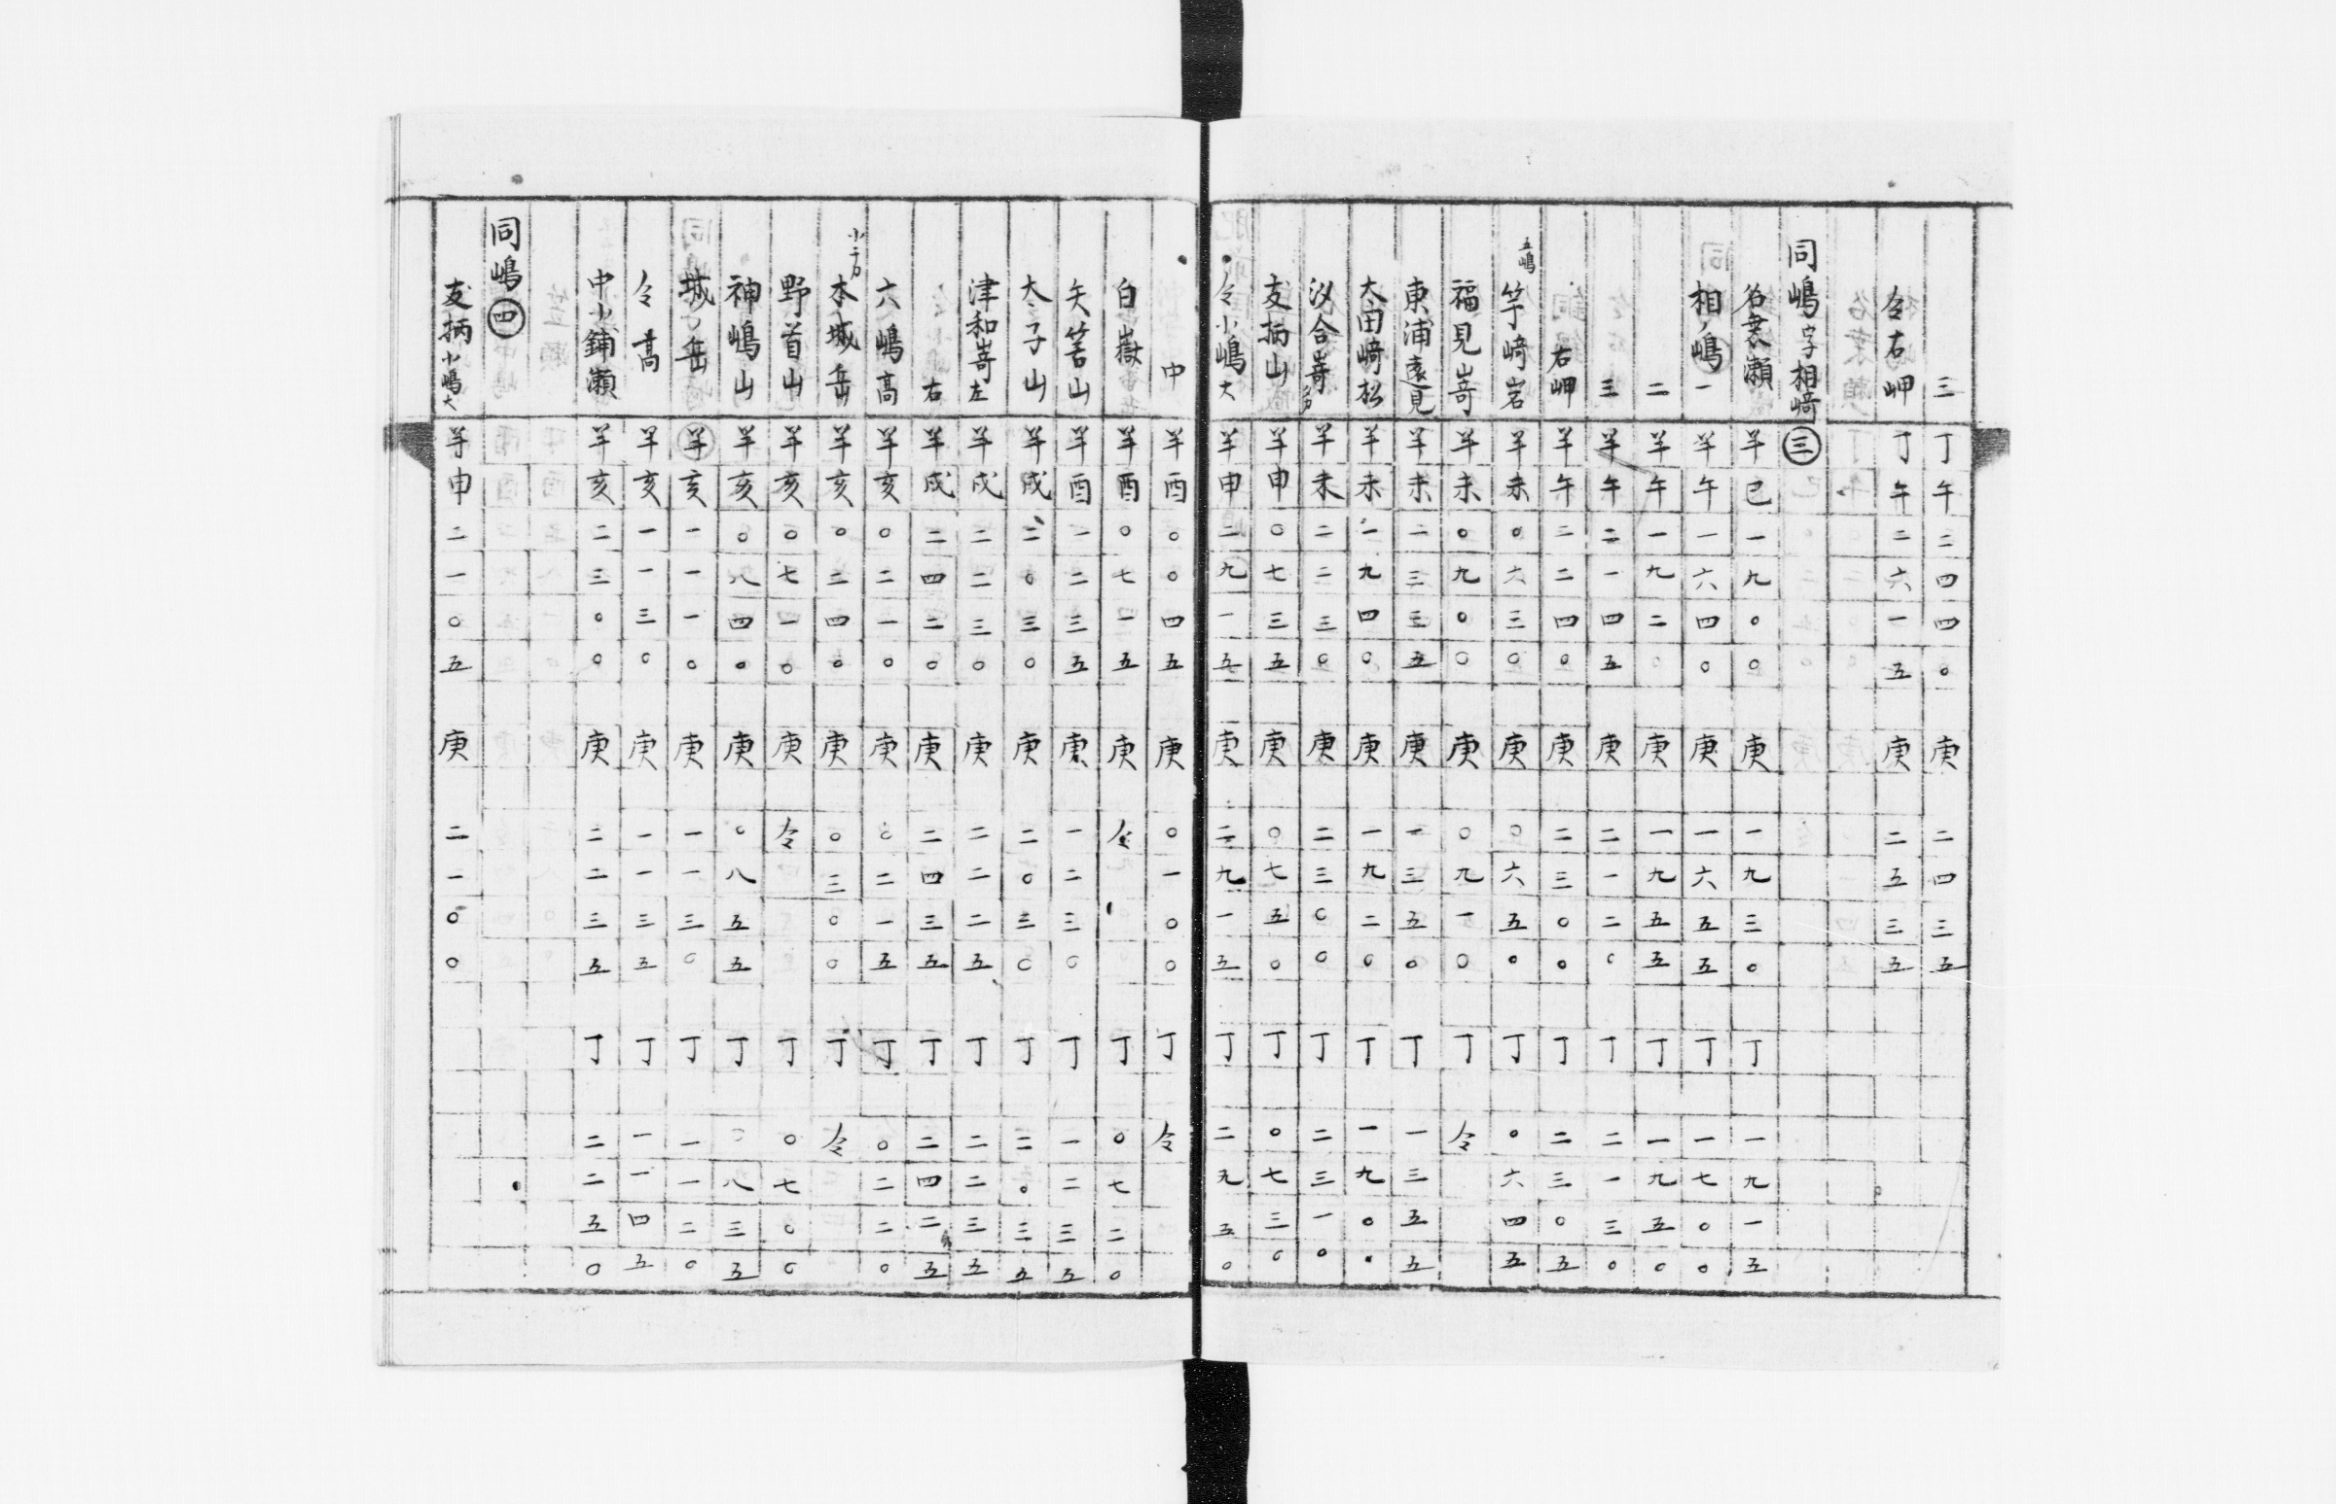 三 丁午二四四〇 庚 二四三五
仝右岬 丁午二六一五 庚 二五三五
同嶋字相﨑㊂
名衆瀬 羊巳一九〇〇 庚 一九三〇 丁 一九一五
相ノ嶋一 羊午一六四〇 庚 一六五五 丁 一七〇〇
二 羊午一九二〇 庚 一九五五 丁 一九五〇
三 羊午二一四五 庚 二一二〇 丁 二一三〇
右岬 羊午二二四〇 庚 二三〇〇 丁 二三〇五
五嶋 竿﨑岩 羊未〇六三〇 庚 〇六五〇 丁 〇六四五
福見嵜 羊未〇九〇〇 庚 〇九一〇 丁 仝
東浦遠見 羊未一三三五 庚 一三五〇 丁 一三五五
大田﨑松 羊未一九四〇 庚 一九二〇 丁 一九〇〇
汐合嵜 羊未二二三〇 庚 二三〇〇 丁 二三一〇
友柄山 羊申〇七三五 庚 〇七五〇 丁 〇七三〇
仝小嶋大 羊申二九一五 庚 二九一五 丁 二九五〇
中 羊酉〇〇四五 庚 〇一〇〇 丁 仝
白嶽 羊酉〇七一五 庚 仝 丁 〇七二〇
矢筈山 羊酉一二三五 庚 一二三〇 丁 一二三五
太子山 羊戌二〇三〇 庚 二〇三〇 丁 二〇三五
津和嵜左 羊戌二二三〇 庚 二二二五 丁 二二三五
右 羊戌二四二〇 庚 二四三五 丁 二四二五
六嶋高 羊亥〇二一〇 庚 〇二一五 丁 〇二二〇
小方 本城岳 羊亥〇二四〇 庚 〇三〇〇 丁 仝
野首山 羊亥〇七一〇 庚 仝 丁 〇七〇〇
神嶋山 羊亥〇八四〇 庚 〇八五五 丁 〇八三五
城ノ岳 羊亥一一一〇 庚 一一三〇 丁 一一二〇
仝高 羊亥一一三〇 庚 一一三五 丁 一一四五
中小鋪瀬 羊亥二三〇〇 庚 二二三五 丁 二二五〇
同嶋㊃
友柄小嶋大 羊申二一〇五 庚 二一〇〇